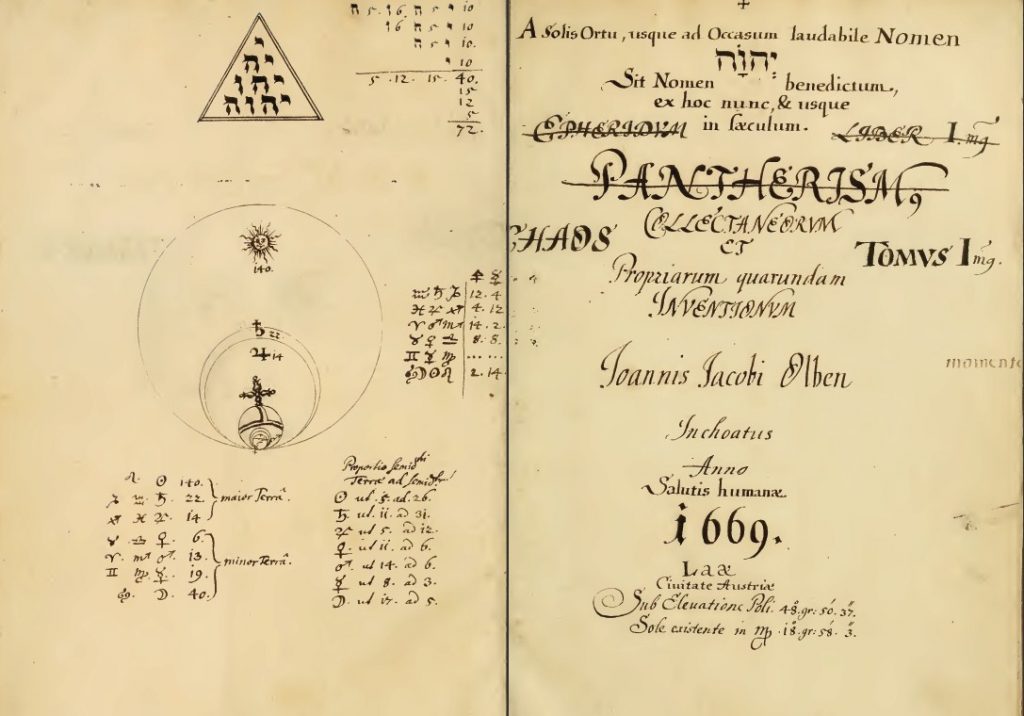 י
יה
יהו
יהוה
ה 5. ו 6. ה 5. י 10
ו 6 ה 5 י 10
ה 5 י 10.
י 10
5 . 12 . 15 . 40.
15
12
5
72.
140.
♄ 22.
♃ 14
♒ ♄ ♑ 12. 4
♓ ♃ ♐ 4. 12
♈ ♂ ♏ 14. 2.
♉ ♀ ♎ 8. 8.
♊ ☿ ♍ ... ...
♋ ☽ ☉ ♌ 2. 14.
♌ ☉ 140.
♑ ♒ ♄ 22 maior Terrâ.
♐ ♓ ♃ 14
♉ ♎ ♀ 6.
♈ ♏ ♂ 13. minor Terrâ.
♊ ♍ ☿ 19.
♋ ☽ 40.
Proportio semid
Terræ ad semid
☉ ut 5. ad. 26.
♄ ut 11. ad 31.
♃ ut 5. ad 12.
♀ ut 11. ad 6.
♂ ut 14. ad 6.
☿ ut 8. ad 3.
☽ ut 17. ad 5.
A Solis Ortu, usque ad Occasum laudabile Nomen
יְהוָֹה
Sit Nomen benedictum,
ex hoc nunc, & usque
in sæculum.
EPHERIDUM LIBER I.mꝯ
PANTHERISMꝯ
COLLECTANEORUM
CHAOS ET TOMVS I mꝯ.
Propriarum quarundam
INVENTIONUM
Ioannis Iacobi Olben
Inchoatus
Anno
Salutis humanæ
1669.
Laæ
Civitate Austriæ
Sub Elevatione Poli. 48. gr: 50. 37.
Sole existente in ♍ . 18. gr: 58. 3.
momento